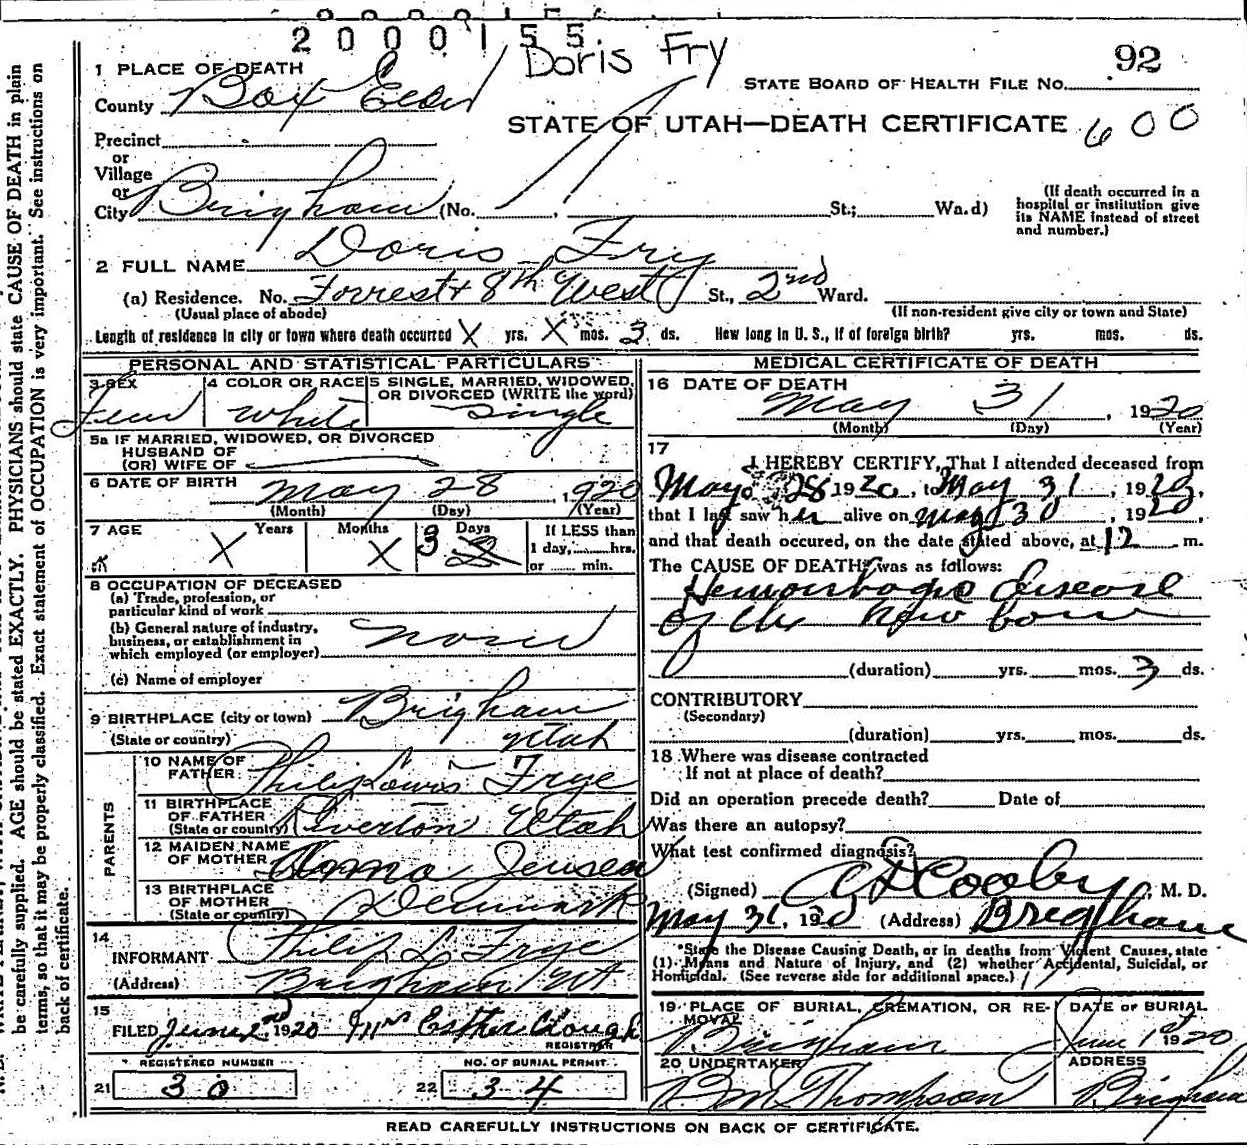 2000155
Doris Fry
92
1 PLACE OF DEATH
STATE BOARD OF HEALTH FILE No.
County Box Elder
STATE OF UTAH—DEATH CERTIFICATE 600
Precinct
or
Village
or
City Brigham (No. St.; Wa.d)
(If death occurred in a
hospital or institution give
its NAME instead of street
and number.)
2 FULL NAME Doris Fry
(a) Residence. No. Forrest & 8th West St., 2nd Ward.
(Usual place of abode)
(If non-resident give city or town and State)
Length of residence in city or town where death occurred X yrs. X mos. 3 ds. How long in U. S., if of foreign birth? yrs. mos. ds.
PERSONAL AND STATISTICAL PARTICULARS
3 SEX
Fem
4 COLOR OR RACE
White
5 SINGLE, MARRIED, WIDOWED,
OR DIVORCED (WRITE the word)
Single
5a IF MARRIED, WIDOWED, OR DIVORCED
HUSBAND OF
(OR) WIFE OF
6 DATE OF BIRTH
May 28, 1920
(Month) (Day) (Year)
7 AGE
Years Months Days
X X 3
If LESS than
1 day, hrs.
or min.
8 OCCUPATION OF DECEASED
(a) Trade, profession, or
particular kind of work
(b) General nature of industry,
business, or establishment in
which employed (or employer)
(c) Name of employer
9 BIRTHPLACE (city or town) Brigham
(State or country) Utah
PARENTS
10 NAME OF
FATHER Philip Lewis Frye
11 BIRTHPLACE
OF FATHER
(State or country) Riverton Utah
12 MAIDEN NAME
OF MOTHER Jensen
13 BIRTHPLACE
OF MOTHER
(State or country) Denmark
14
INFORMANT Philip L Frye
(Address) Brigham Ut
15
FILED June 2nd 1920 Mrs Esther Clough
REGISTRAR
REGISTERED NUMBER
21 30
NO. OF BURIAL PERMIT
22 34
MEDICAL CERTIFICATE OF DEATH
16 DATE OF DEATH
May 31, 1920
(Month) (Day) (Year)
17
I HEREBY CERTIFY, That I attended deceased from
May 28 1920, to May 31, 1920,
that I last saw her alive on May 30, 1920,
and that death occured, on the date stated above, at 12 m.
The CAUSE OF DEATH was as follows:
Hemorrhagic disease
of the new born
(duration) yrs. mos. 3 ds.
CONTRIBUTORY
(Secondary)
(duration) yrs. mos. ds.
18 Where was disease contracted
If not at place of death?
Did an operation precede death? Date of
Was there an autopsy?
What test confirmed diagnosis?
(Signed) Cooley, M. D.
May 31, 1920 (Address) Brigham
*State the Disease Causing Death, or in deaths from Violent Causes, state
(1) Means and Nature of Injury, and (2) whether Accidental, Suicidal, or
Homicidal. (See reverse side for additional space.)
19 PLACE OF BURIAL, CREMATION, OR RE-
MOVAL
Brigham
DATE OF BURIAL
June 1st 1920
20 UNDERTAKER
Thompson
ADDRESS
Brigham
READ CAREFULLY INSTRUCTIONS ON BACK OF CERTIFICATE.
be carefully supplied. AGE should be stated EXACTLY. PHYSICIANS should state CAUSE OF DEATH in plain
terms, so that it may be properly classified. Exact statement of OCCUPATION is very important. See instructions on
back of certificate.